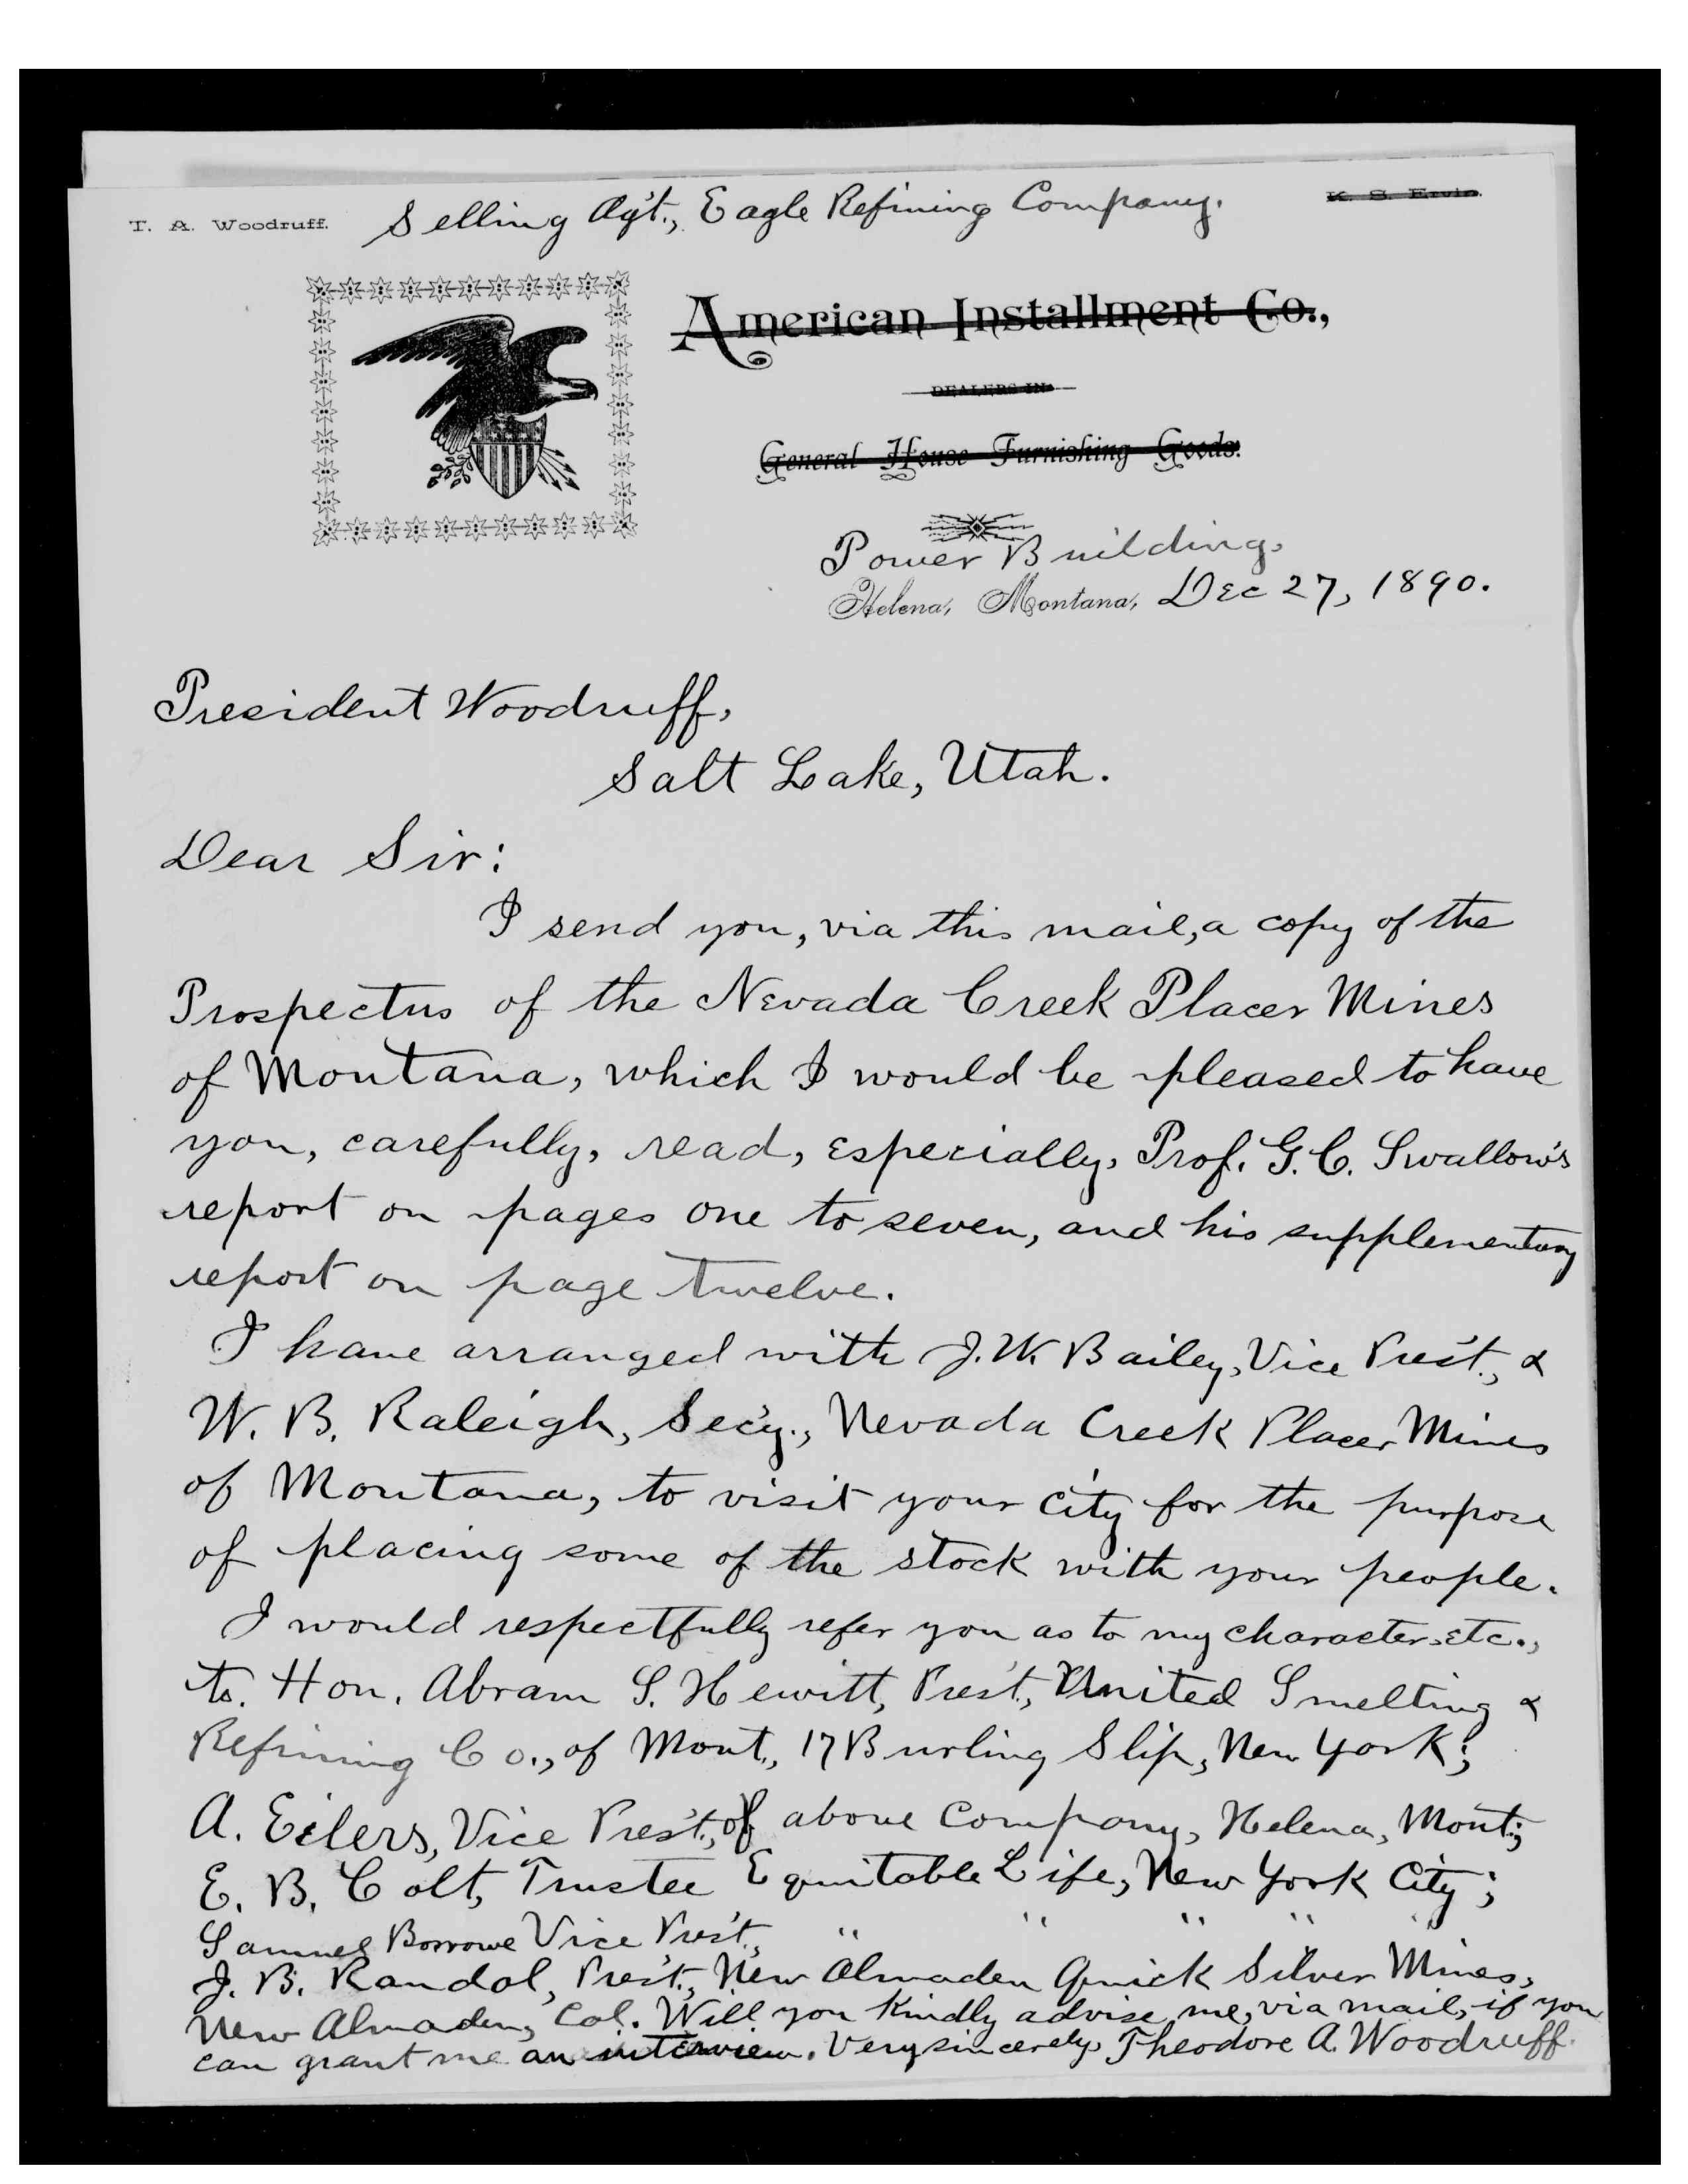 T. A. Woodruff. Selling Ag't., Eagle Refining Company.
K. S. Ervin.
American Installment Co.,
DEALERS IN
General House Furnishing Goods.
Power Building,
Helena, Montana, Dec 27, 1890.
President Woodruff,
Salt Lake, Utah.
Dear Sir:
I send you, via this mail, a copy of the
Prospectus of the Nevada Creek Placer Mines
of Montana, which I would be pleased to have
you, carefully, read, especially, Prof. G. C. Swallow's
report on pages one to seven, and his supplementary
report on page twelve.
I have arranged with J. W. Bailey, Vice Pres't., &
W. B. Raleigh, Sec'y., Nevada Creek Placer Mines
of Montana, to visit your city for the purpose
of placing some of the stock with your people.
I would respectfully refer you as to my character, etc.,
to. Hon. Abram S. Hewitt, Pres't., United Smelting &
Refining Co., of Mont., 17 Burling Slip, New York;
A. Eilers, Vice Pres't., of above Company, Helena, Mont.;
E. B. Colt, Trustee Equitable Life, New York City;
Samuel Borrowe Vice Pres't., " " " " "
J. B. Randol, Pres't., New Almaden Quick Silver Mines,
New Almaden, Cal. Will you kindly advise me, via mail, if you
can grant me an interview. Very sincerely, Theodore A. Woodruff.